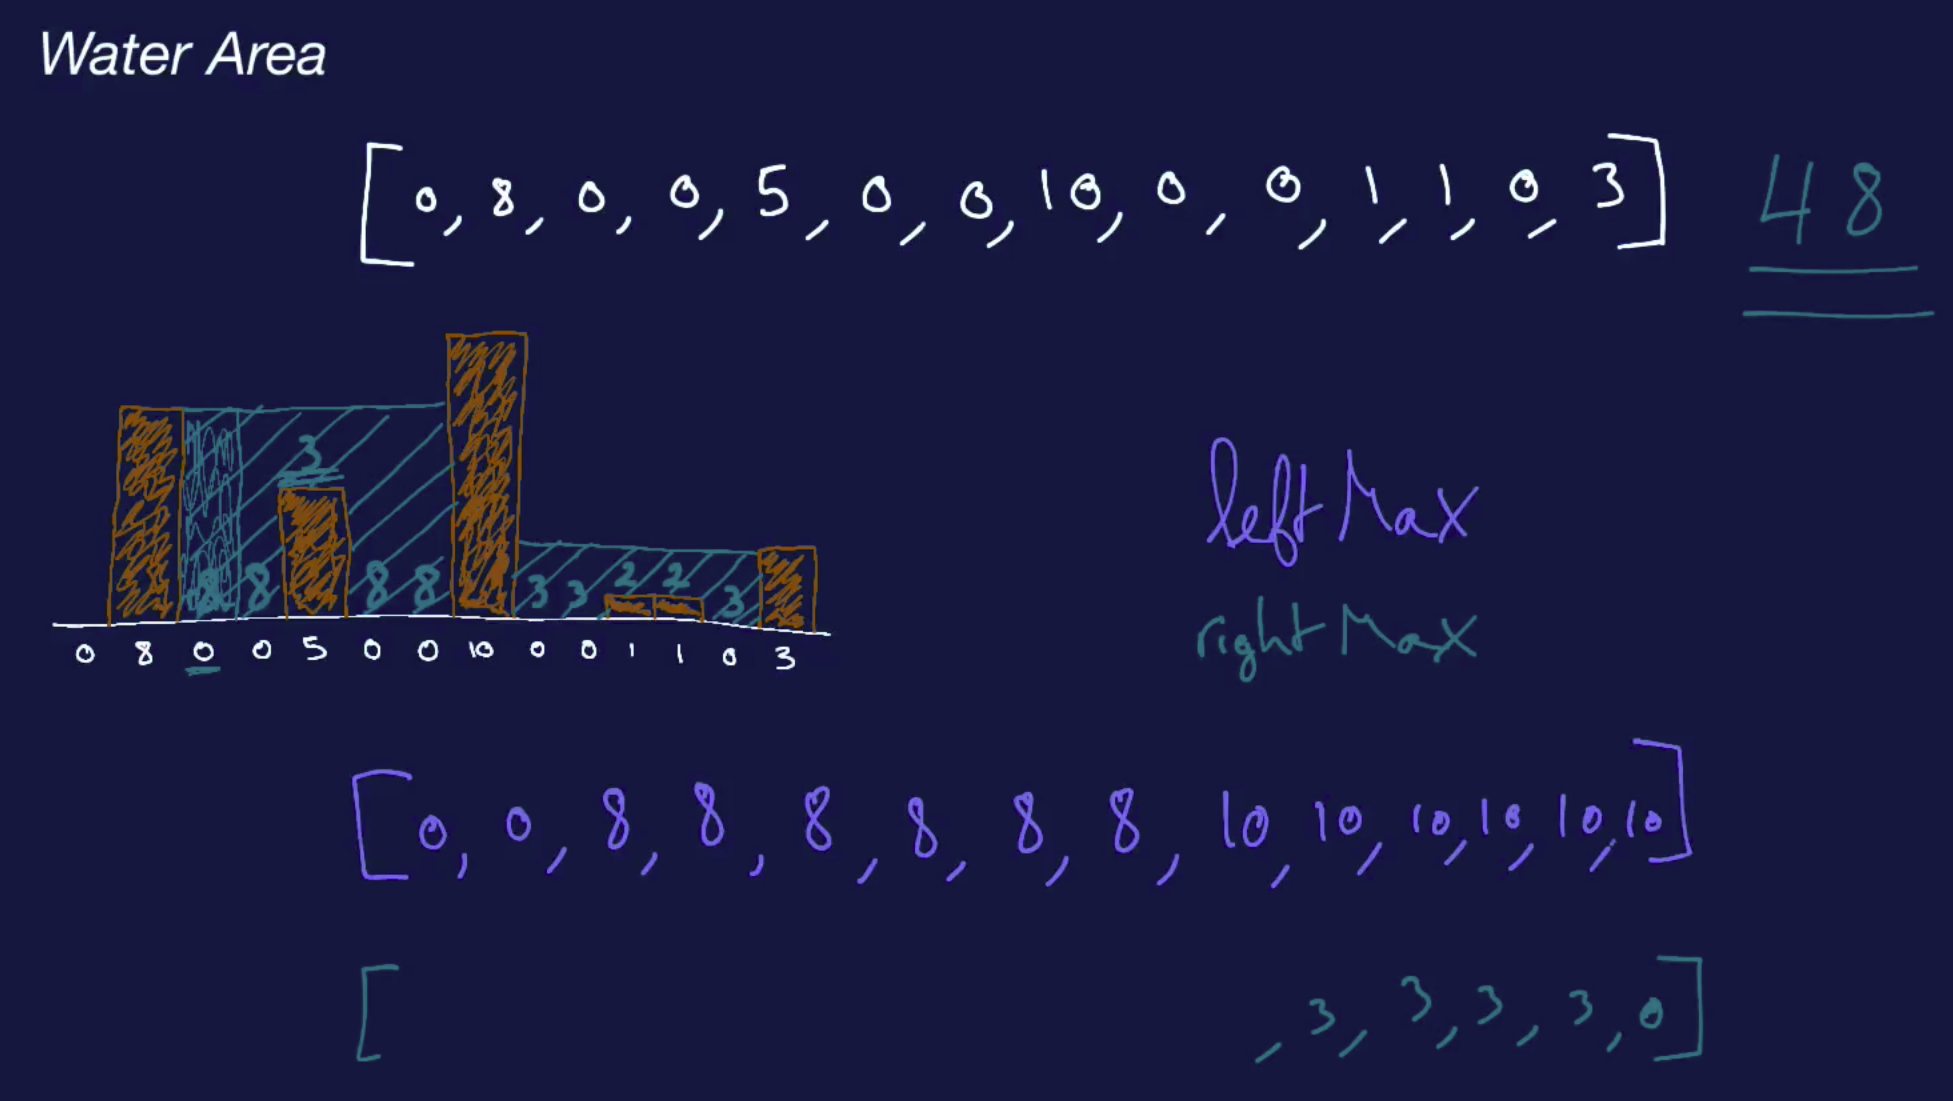 Water Area
[0, 8, 0, 0, 5, 0, 0, 10, 0, 0, 1, 1, 0, 3] 48
3
8 8 8 8 3 3 2 2 3
0 8 0 0 5 0 0 10 0 0 1 1 0 3
leftMax
rightMax
[0, 0, 8, 8, 8, 8, 8, 8, 10, 10, 10, 10, 10, 10]
[ , 3, 3, 3, 3, 0]